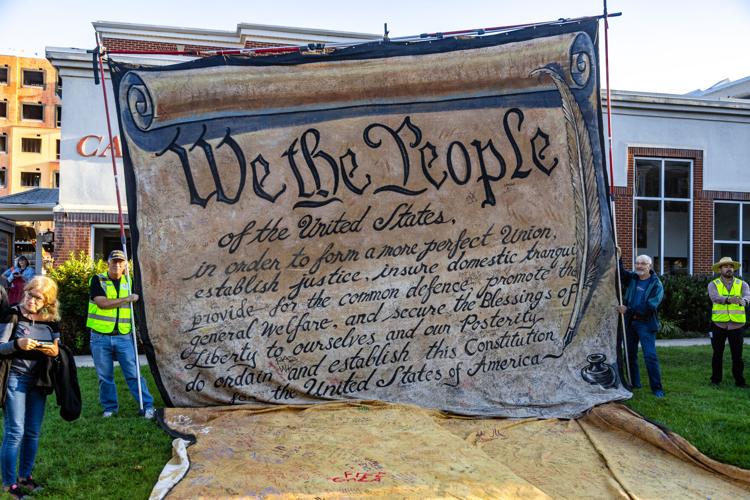 CA
We the People
of the United States,
in order to form a more perfect Union,
establish justice, insure domestic tranqui
provide for the common defence, promote the
general Welfare, and secure the Blessings of
Liberty to ourselves and our Posterity
do ordain and establish this Constitution
for the United States of America